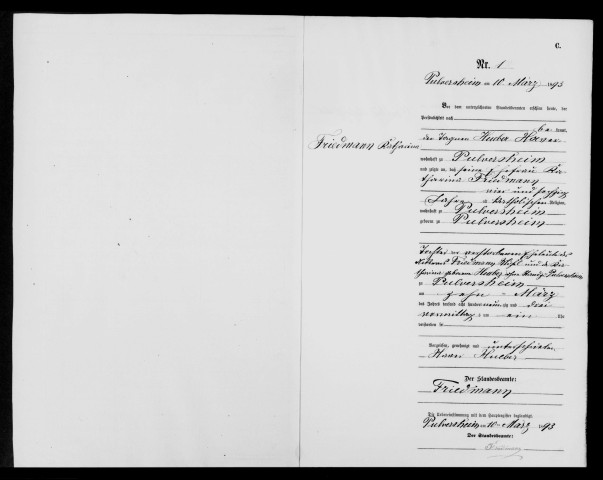 C.
Nr. 1
Pulversheim am 10. März 1893
Vor dem unterzeichneten Standesbeamten erschien heute, der
Persönlichkeit nach
kannt,
der Hueber
Friedmann Katharina
wohnhaft zu Pulversheim
und zeigte an, daß seine Ehefrau Ka-
tharina Friedmann
vier und sechzig
Jahre katholischen Religion,
wohnhaft zu Pulversheim
geboren zu Pulversheim
Tochter der verstorbenen Eheleute
Friedmann und Ka-
tharina geborene Hueber
zu Pulversheim
am zehn März
des Jahres tausend acht hundert neunzig und drei
vormittags um ein Uhr
verstorben sei
Vorgelesen, genehmigt und unterschrieben
Hueber
Der Standesbeamte:
Friedmann
Die Uebereinstimmung mit dem Hauptregister beglaubigt
Pulversheim am 10. März 1893
Der Standesbeamte: